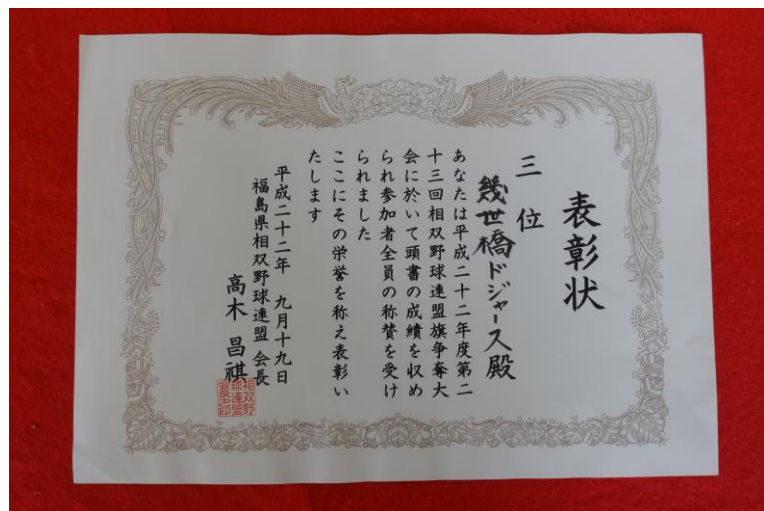 表彰状
三位
幾世橋ドジャース殿
あなたは平成二十二年度第二
十三回相双野球連盟旗争奪大
会に於いて頭書の成績を収め
られ参加者全員の称賛を受け
られました
ここにその栄誉を称え表彰い
たします
平成二十二年 九月十九日
福島県相双野球連盟 会長
高木 昌祺
相双野
球連盟
会長之印